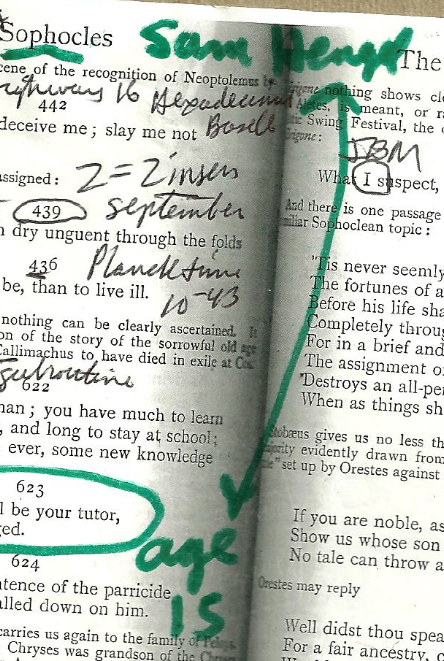 Sophocles
cene of the recognition of Neoptolemus by
16 Hexadecimal
442
deceive me; slay me not
assigned:
2=2
439
september
n dry unguent through the folds
436
Planck time
be, than to live ill.
10-43
nothing can be clearly ascertained. It
on of the story of the sorrowful old age
Callimachus to have died in exile at Cos.
subroutine
622
nan; you have much to learn
, and long to stay at school;
ever, some new knowledge
623
l be your tutor,
ged.
624
ntence of the parricide
alled down on him.
carries us again to the family of Pelops.
Chryses was grandson of the Chryses
Sam
age
15
The
Erigone nothing shows cle
Aletes, is meant, or ra
Swing Festival, the
Erigone:
IBM
What I suspect,
And there is one passage
miliar Sophoclean topic:
'Tis never seemly
The fortunes of a
Before his life sha
Completely throug
For in a brief and
The assignment o
Destroys an all-pe
When as things sh
Stobæus gives us no less th
jority evidently drawn from
set up by Orestes against
If you are noble, as
Show us whose son
No tale can throw a
Orestes may reply
Well didst thou spea
For a fair ancestry, c